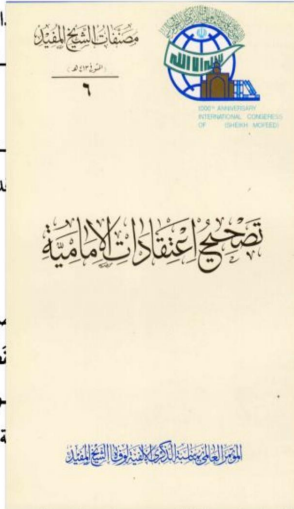 مصنفات الشيخ المفيد
(المتوفى ٤١٣ هـ)
٦
1000TH ANNIVERSARY
INTERNATIONAL CONGRESS
OF (SHEIKH MOFEED)
تصحيح اعتقادات الإمامية
المؤتمر العالمي بمناسبة الذكرى الألفية لوفاة الشيخ المفيد